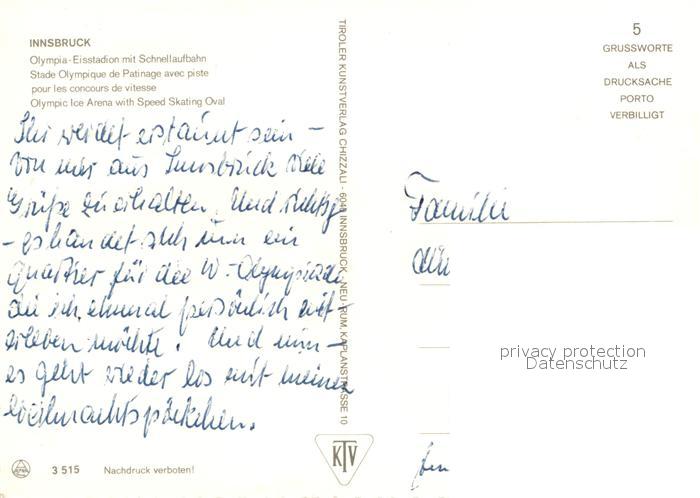 INNSBRUCK
Olympia-Eisstadion mit Schnellaufbahn
Stade Olympique de Patinage avec piste
pour les concours de vitesse
Olympic Ice Arena with Speed Skating Oval
Ihr werdet erstaunt sein –
von mir aus Innsbruck viele
Grüße zu erhalten. Und richtig
– es handelt sich um ein
Quartier für die W-Olympiade
die ich einmal persönlich mit-
erleben möchte. Und nun –
es geht wieder los mit meinen
Weihnachtspäckchen.
3 515 Nachdruck verboten!
TIROLER KUNSTVERLAG CHIZZALI - 6040 INNSBRUCK - NEU-RUM, KAPLANSTRASSE 10
KTV
5
GRUSSWORTE
ALS
DRUCKSACHE
PORTO
VERBILLIGT
Familie
privacy protection
Datenschutz